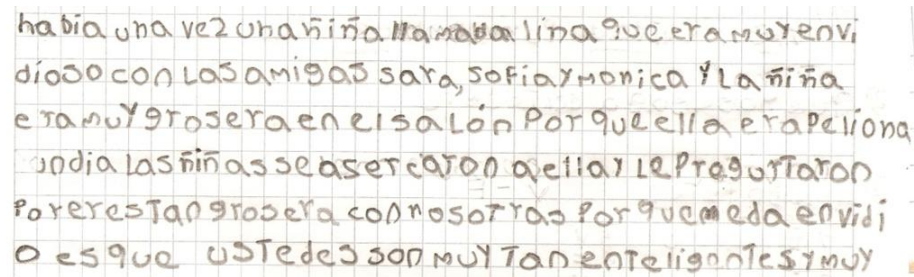 habia una vez una niña llamada lina que era muy envi
dioso con Las amigas sara, sofia y monica y La niña
era muy grosera en el saLón Por que ella era Peliona
un dia Las niñas se asercaron a ella y Le Pregurtaron
Por eres Tan grosera con nosotras Por que me da envidi
o es que usTedes son muy Tan enteligentes y muy